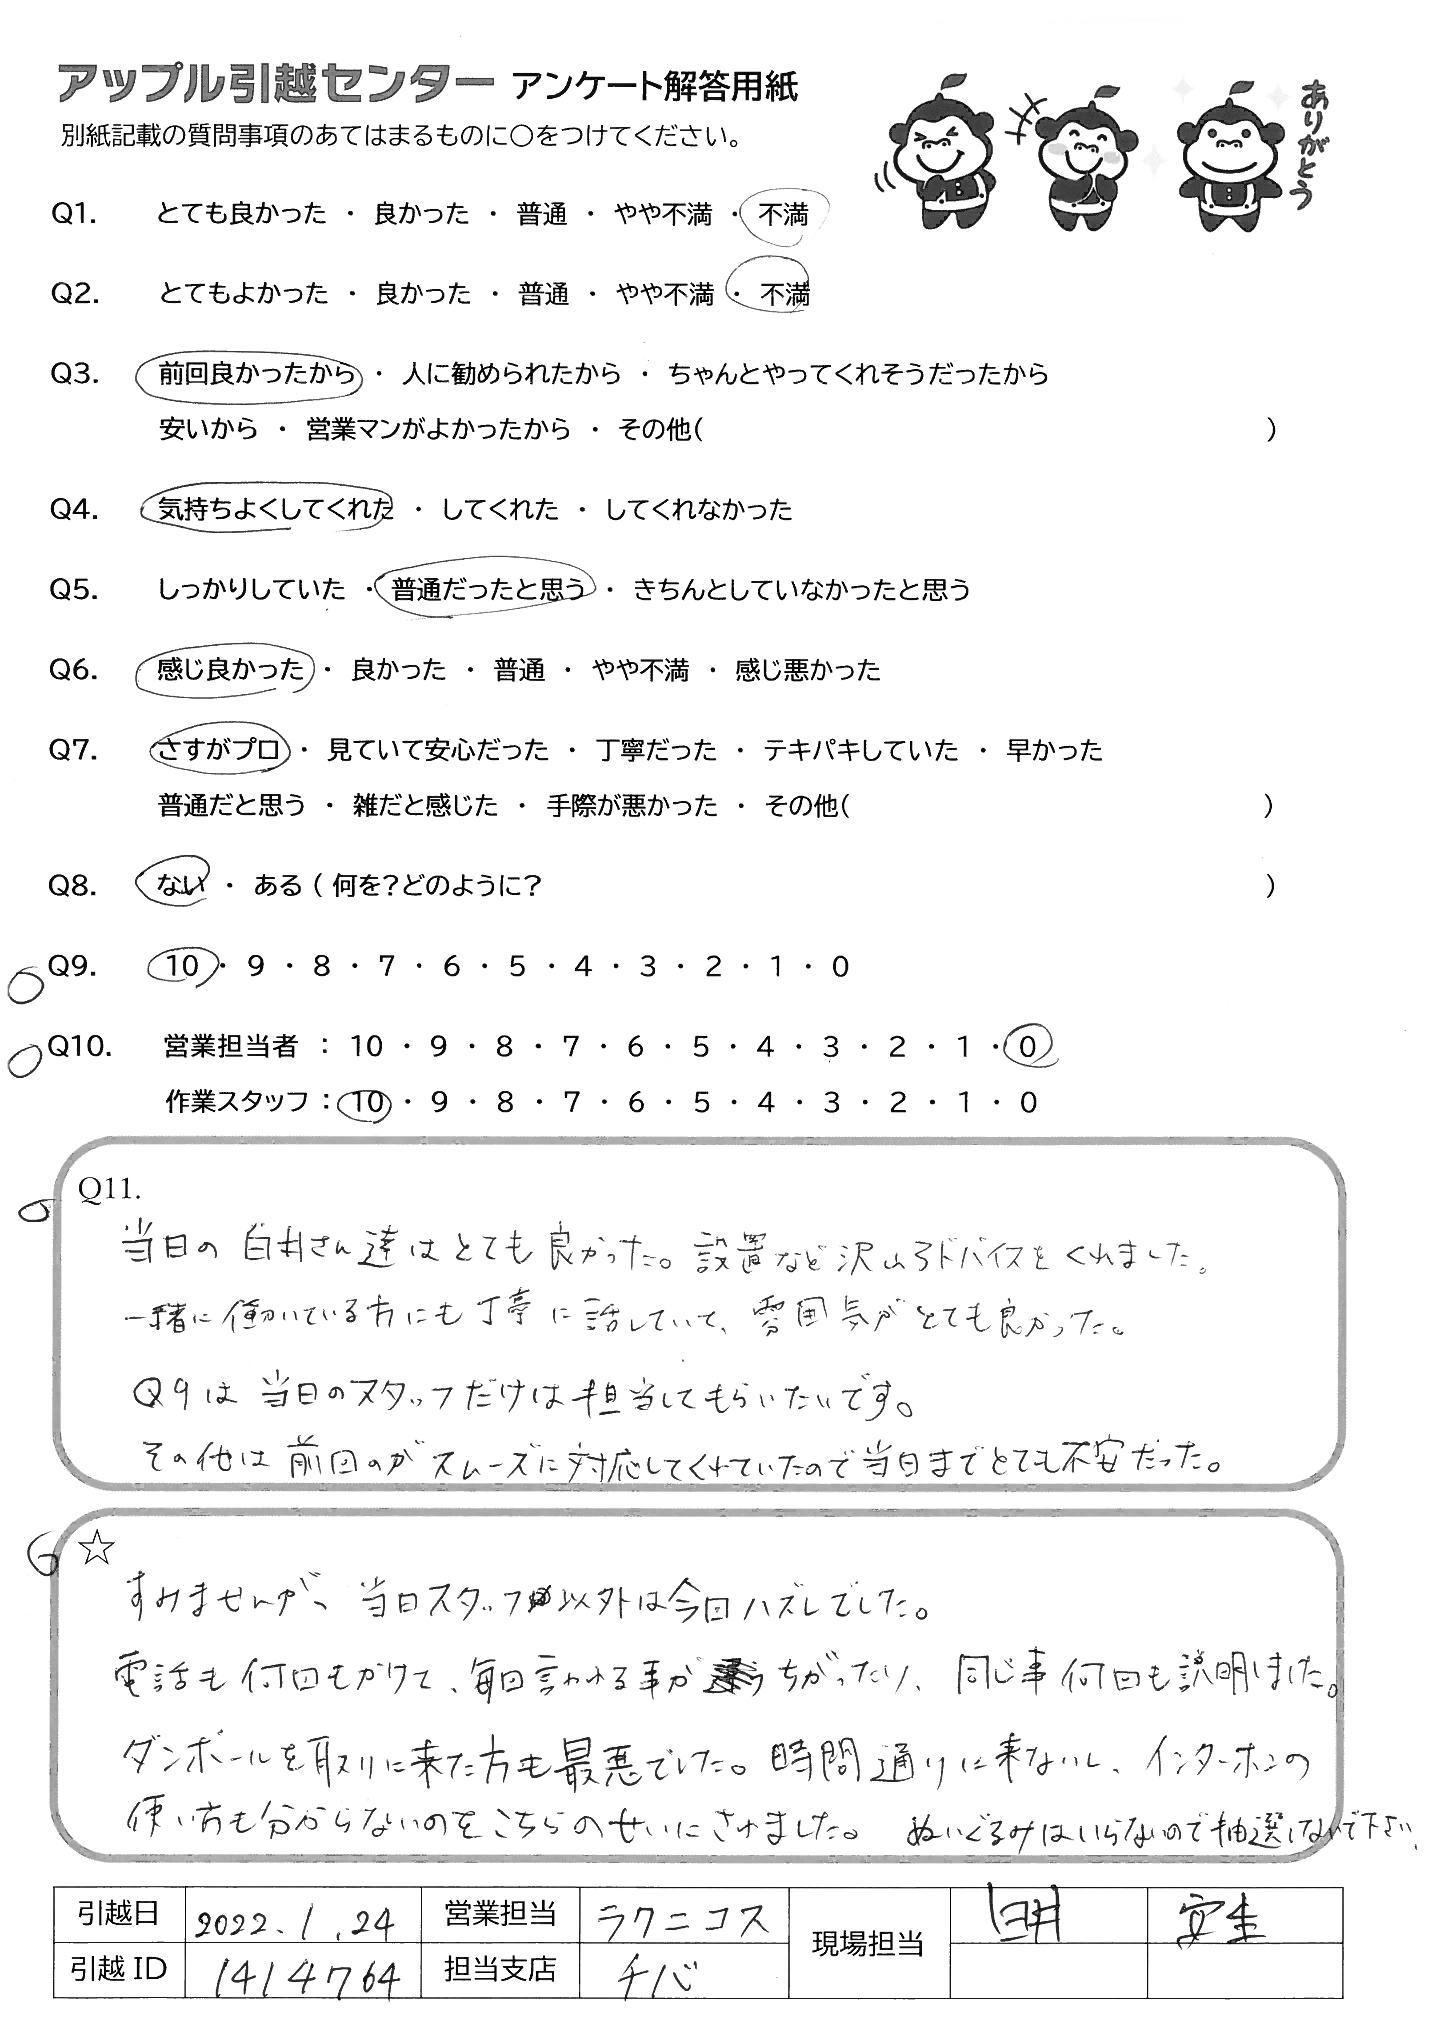 アップル引越センター アンケート解答用紙
別紙記載の質問事項のあてはまるものに〇をつけてください。
ありがとう
Q1. とても良かった ・ 良かった ・ 普通 ・ やや不満 ・ 不満
Q2. とてもよかった ・ 良かった ・ 普通 ・ やや不満 ・ 不満
Q3. 前回良かったから ・ 人に勧められたから ・ ちゃんとやってくれそうだったから
安いから ・ 営業マンがよかったから ・ その他( )
Q4. 気持ちよくしてくれた ・ してくれた ・ してくれなかった
Q5. しっかりしていた ・ 普通だったと思う ・ きちんとしていなかったと思う
Q6. 感じ良かった ・ 良かった ・ 普通 ・ やや不満 ・ 感じ悪かった
Q7. さすがプロ ・ 見ていて安心だった ・ 丁寧だった ・ テキパキしていた ・ 早かった
普通だと思う ・ 雑だと感じた ・ 手際が悪かった ・ その他( )
Q8. ない ・ ある ( 何を?どのように? )
Q9. 10 ・ 9 ・ 8 ・ 7 ・ 6 ・ 5 ・ 4 ・ 3 ・ 2 ・ 1 ・ 0
Q10. 営業担当者 : 10 ・ 9 ・ 8 ・ 7 ・ 6 ・ 5 ・ 4 ・ 3 ・ 2 ・ 1 ・ 0
作業スタッフ : 10 ・ 9 ・ 8 ・ 7 ・ 6 ・ 5 ・ 4 ・ 3 ・ 2 ・ 1 ・ 0
Q11.
当日の 白井さん達はとても良かった。設置など沢山アドバイスをくれました。
一緒に働いている方にも丁寧に話していて、雰囲気がとても良かった。
Q9は 当日のスタッフだけは担当してもらいたいです。
その他は前回のがスムーズに対応してくれていたので当日までとても不安だった。
☆
すみませんが、当日スタッフ以外は今回ハズレでした。
電話も何回もかけて、毎回言われる事がちがったり、同じ事何回も説明しました。
ダンボールを取りに来た方も最悪でした。時間通りに来ないし、インターホンの
使い方も分からないのをこちらのせいにされました。 ぬいぐるみはいらないので抽選しないで下さい。
引越日 2022.1.24 営業担当 ラクニコス 現場担当 白井 安生
引越 ID 1414764 担当支店 チバ